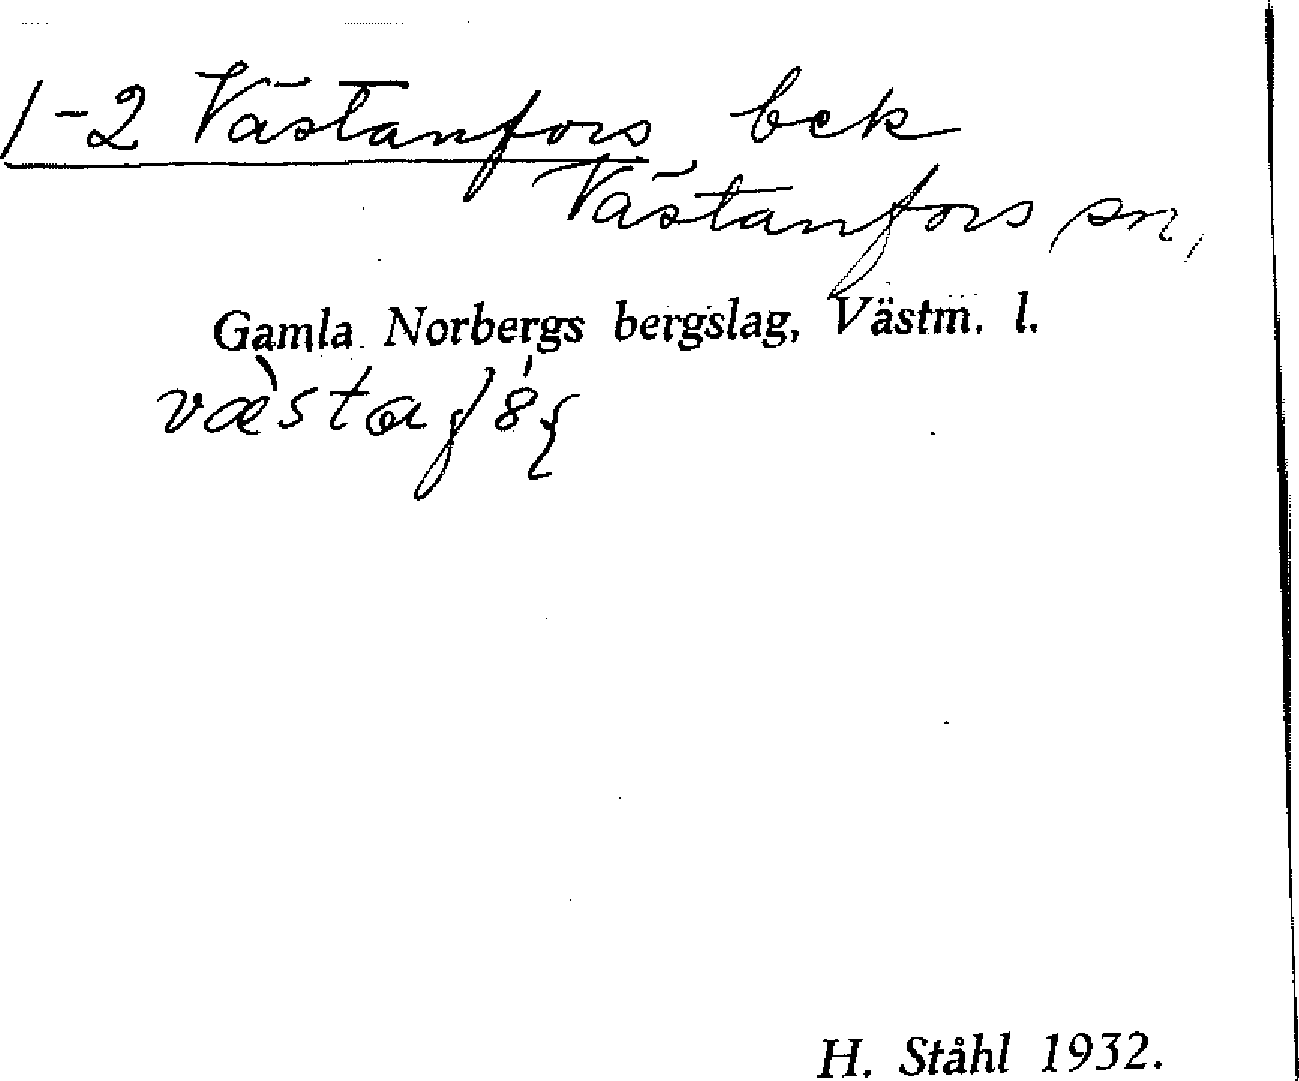 1-2 Västanfors bck
Västanfors sn,
Gamla Norbergs bergslag, Västm. l.
H. Ståhl 1932.